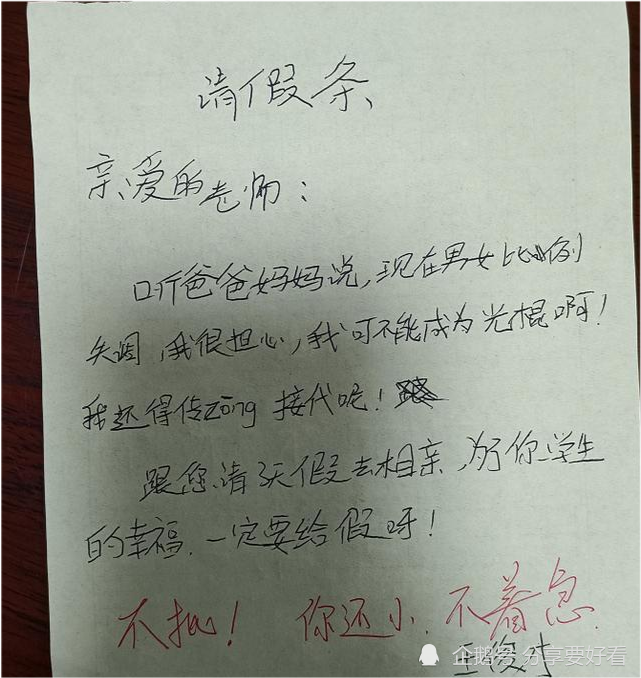 请假条
亲爱的老师：
听爸爸妈妈说，现在男女比例
失调，我很担心，我可不能成为光棍啊！
我还得传zōng接代呢！
跟您请3天假去相亲，为了你学生
的幸福，一定要给假呀！
不批！ 你还小，不着急
企鹅号 分享要好看